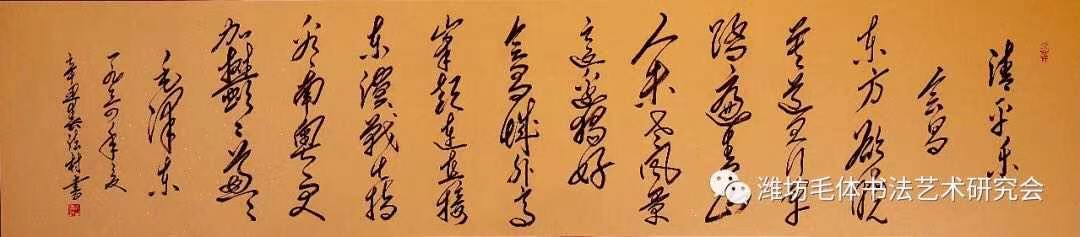 清平乐
会昌
东方欲晓
莫道君行早
踏遍青山
人未老风景
这边独好
会昌城外高
峰颠连直接
东溟戰士指
看南粤更
加鬱〻葱〻
毛泽东
一九三四年夏
潍坊毛体书法艺术研究会